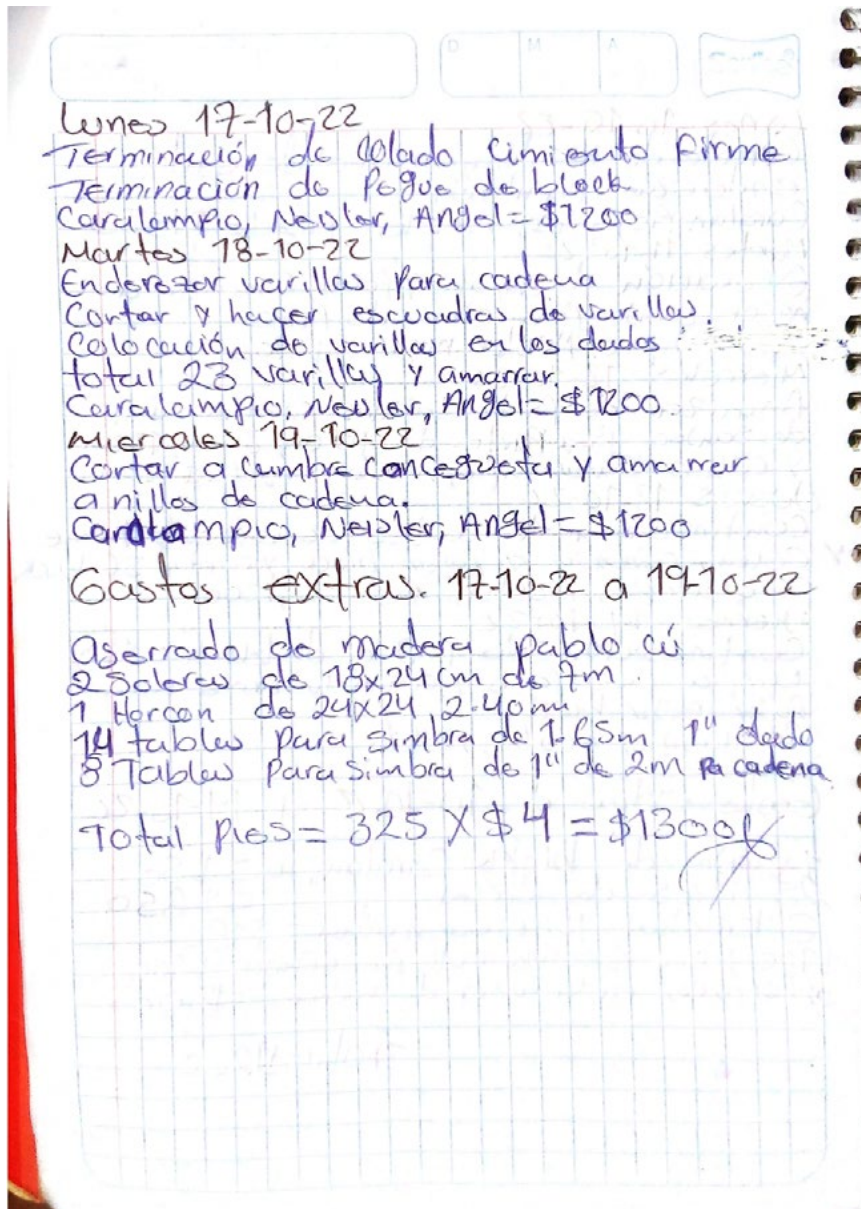 D M A
Lunes 17-10-22
Terminación de colado cimiento firme
Terminación de pegue de block
Caralampio, Neisler, Angel = $1200
Martes 18-10-22
Enderezar varillas para cadena
Cortar y hacer escuadras de varillas.
Colocación de varillas en los dados
total 23 varillas y amarrar.
Caralampio, Neisler, Angel = $1200
Miercoles 19-10-22
Cortar a cumbra y amarrar
anillos de cadena.
Caralampio, Neisler, Angel = $1200
Gastos extras. 17-10-22 a 19-10-22
aserrado de madera pablo cú
2 Soleras de 18x24 cm de 7m.
1 Horcon de 24x24 2.40m
14 tablas para simbra de 1.65m 1" dado
8 Tablas para simbra de 1" de 2m pa cadena
Total pies = 325 X $4 = $1300